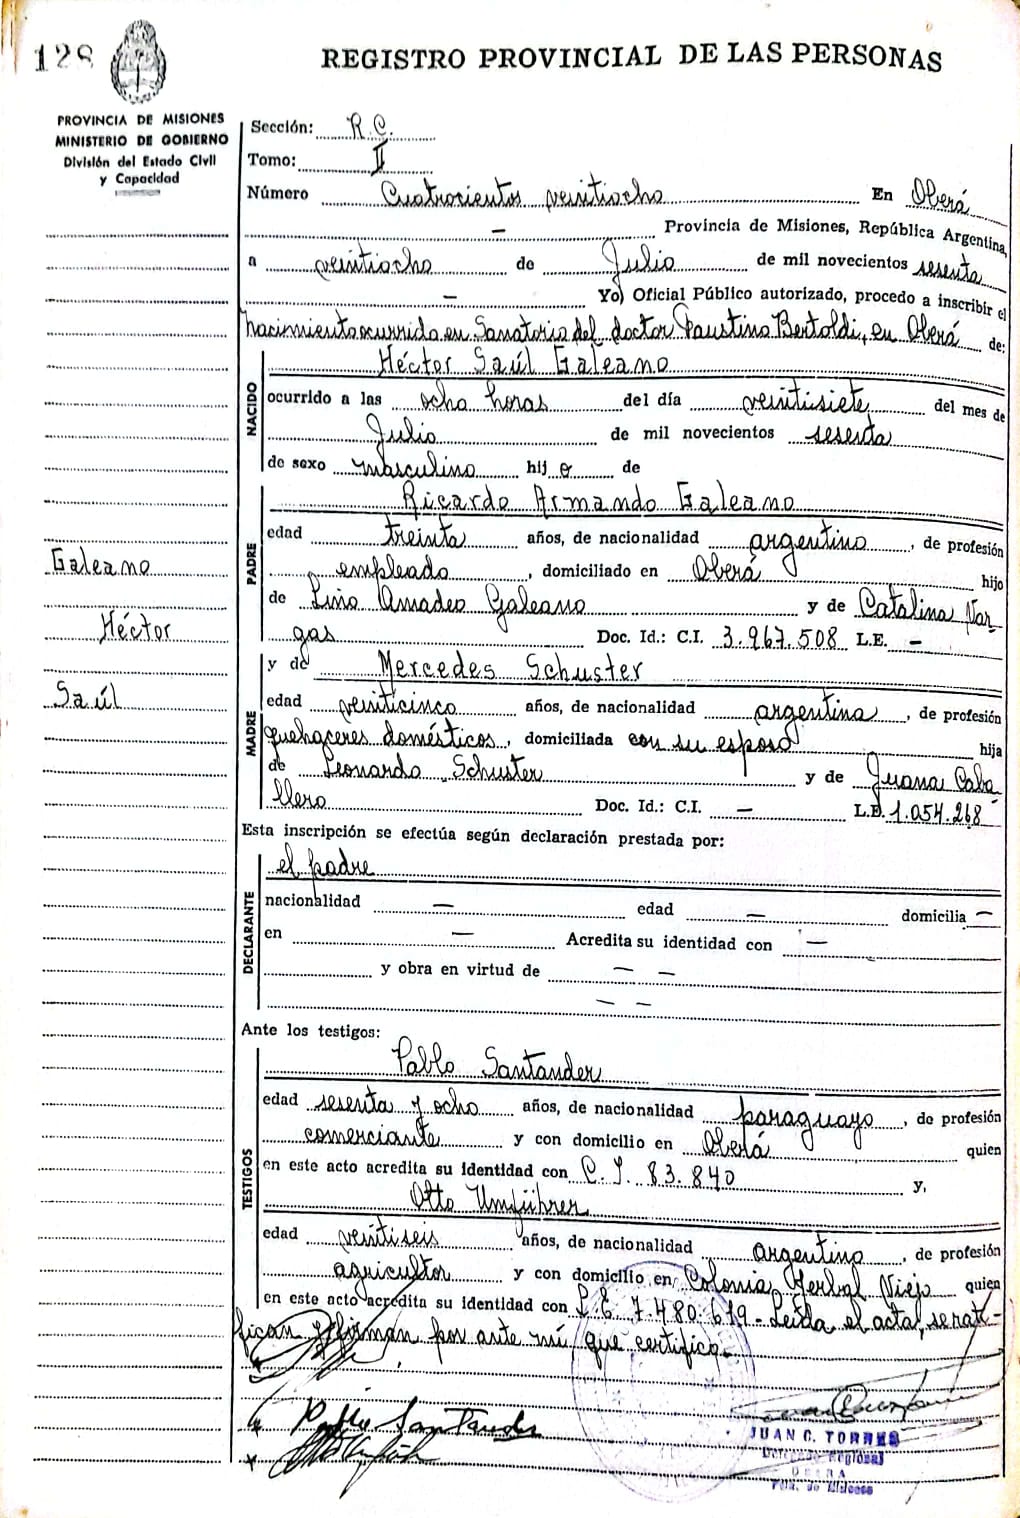 128
REGISTRO PROVINCIAL DE LAS PERSONAS
PROVINCIA DE MISIONES
MINISTERIO DE GOBIERNO
División del Estado Civil
y Capacidad
Sección: R.C.
Tomo: II
Número Cuatrocientos veintiocho En Oberá
— Provincia de Misiones, República Argentina,
a veintiocho de Julio de mil novecientos sesenta
— Yo, Oficial Público autorizado, procedo a inscribir el
nacimiento ocurrido en Sanatorio del doctor Faustino Bertoldi, en Oberá de:
NACIDO
Héctor Saúl Galeano
ocurrido a las ocho horas del día veintisiete del mes de
Julio de mil novecientos sesenta
de sexo masculino hijo de
PADRE
Ricardo Armando Galeano
edad treinta años, de nacionalidad argentino, de profesión
empleado, domiciliado en Oberá hijo
de Lino Amadeo Galeano y de Catalina Var-
gas Doc. Id.: C.I. 3.967.508 L.E. —
Galeano
Héctor
Saúl
MADRE
y de Mercedes Schuster
edad veinticinco años, de nacionalidad argentina, de profesión
quehaceres domésticos, domiciliada con su esposo hija
de Leonardo Schuster y de Juana Caba
llero Doc. Id.: C.I. — L.E. 1.054.268
Esta inscripción se efectúa según declaración prestada por:
DECLARANTE
el padre
nacionalidad — edad — domicilia —
en — Acredita su identidad con —
y obra en virtud de — —
— —
Ante los testigos:
TESTIGOS
Pablo Santander
edad sesenta y ocho años, de nacionalidad paraguayo, de profesión
comerciante y con domicilio en Oberá quien
en este acto acredita su identidad con C.I. 83.840 y,
Otto Umführer
edad veintiseis años, de nacionalidad argentino, de profesión
agricultor y con domicilio en Colonia Yerbal Viejo quien
en este acto acredita su identidad con L.E. 7.480.619 - Leída el acta, se rati-
fican y firman por ante mí que certifico.
Pablo Santander
JUAN C. TORRES
Delegado Regional
OBERA